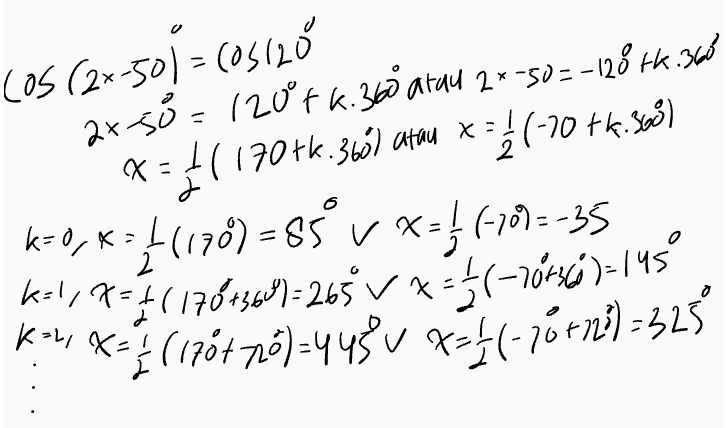 cos (2x-50)° = cos 120°
2x-50° = 120° + k.360° atau 2x-50 = -120° + k.360°
x = 1/2 (170 + k.360°) atau x = 1/2 (-70 + k.360°)
k=0, x = 1/2 (170°) = 85° ∨ x = 1/2 (-70°) = -35
k=1, x = 1/2 (170°+360°) = 265° ∨ x = 1/2 (-70°+360°) = 145°
k=2, x = 1/2 (170°+720°) = 445° ∨ x = 1/2 (-70°+720°) = 325°